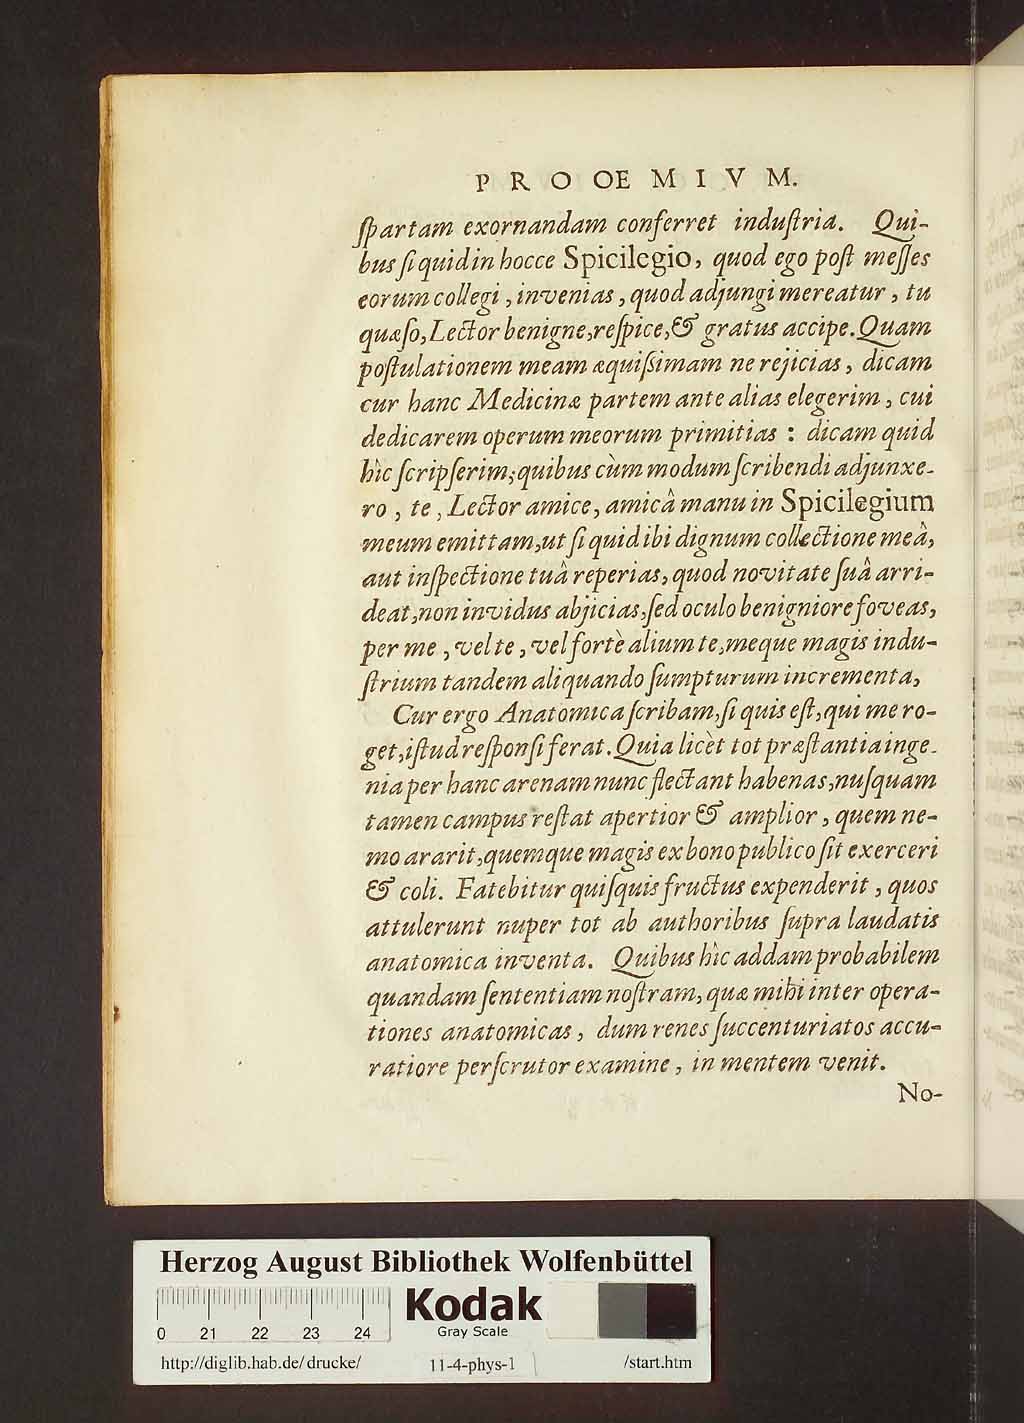 PROOEMIVM.
ſpartam exornandam conferret induſtria. Qui-
bus ſi quid in hocce Spicilegio, quod ego poſt meſſes
eorum collegi, invenias, quod adjungi mereatur, tu
quæſo, Lector benigne, reſpice, & gratus accipe. Quam
poſtulationem meam æquiſſimam ne rejicias, dicam
cur hanc Medicinæ partem ante alias elegerim, cui
dedicarem operum meorum primitias : dicam quid
hîc ſcripſerim; quibus cùm modum ſcribendi adjunxe-
ro, te, Lector amice, amicâ manu in Spicilegium
meum emittam, ut ſi quid ibi dignum collectione meâ,
aut inſpectione tuâ reperias, quod novitate ſuâ arri-
deat, non invidus abjicias, ſed oculo benigniore foveas,
per me, vel te, vel fortè alium te, meque magis indu-
ſtrium tandem aliquando ſumpturum incrementa,
Cur ergo Anatomica ſcribam, ſi quis eſt, qui me ro-
get, iſtud reſponſi ferat. Quia licèt tot præſtantia inge-
nia per hanc arenam nunc flectant habenas, nuſquam
tamen campus reſtat apertior & amplior, quem ne-
mo ararit, quemque magis ex bono publico ſit exerceri
& coli. Fatebitur quiſquis fructus expenderit, quos
attulerunt nuper tot ab authoribus ſupra laudatis
anatomica inventa. Quibus hîc addam probabilem
quandam ſententiam noſtram, quæ mihi inter opera-
tiones anatomicas, dum renes ſuccenturiatos accu-
ratiore perſcrutor examine, in mentem venit.
No-
Herzog August Bibliothek Wolfenbüttel
0 21 22 23 24
Kodak
Gray Scale
http://diglib.hab.de/drucke/ 11-4-phys-1 /start.htm